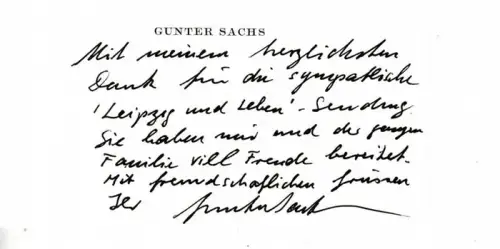 GUNTER SACHS
Mit meinem herzlichsten
Dank für die sympathische
'Leipzig und Leben'-Sendung.
Sie haben mir und der ganzen
Familie viel Freude bereitet.
Mit freundschaftlichen Grüssen
Ihr Gunter Sachs